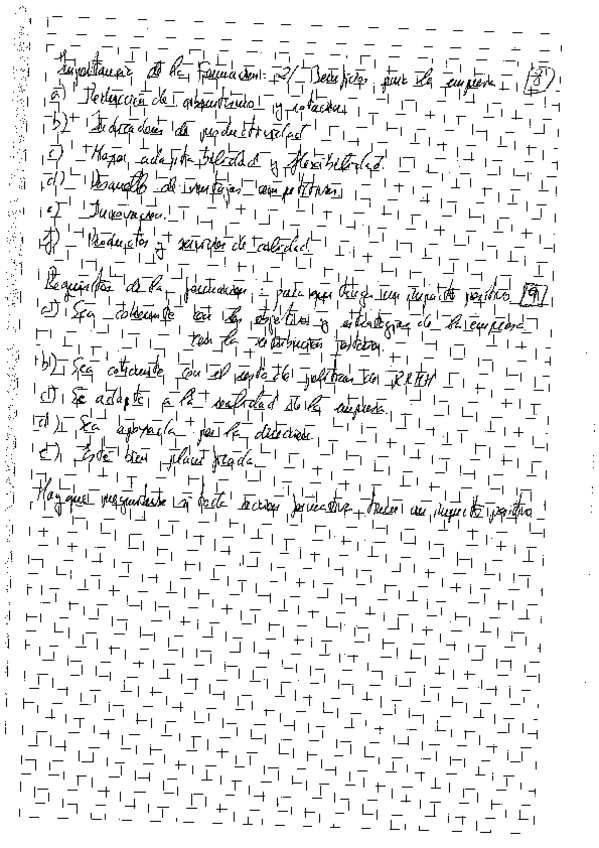 Importancia de la Formación: 2/ Beneficios para la empresa [8]
a) Reducción del absentismo y rotación
b) Indicadores de productividad
c) Mayor adaptabilidad y flexibilidad.
d) Desarrollo de ventajas competitivas
e) Innovación.
f) Productos y servicios de calidad.
Requisitos de la formación: para que tenga un impacto positivo [9]
a) Sea coherente con los objetivos y estrategias de la empresa
con la
b) Sea coherente con el resto de políticas de RRHH
c) Se adapte a la realidad de la empresa
d) Sea apoyada por la dirección
e) Esté bien planificada
Hay que preguntarse si cada acción formativa tiene un impacto positivo